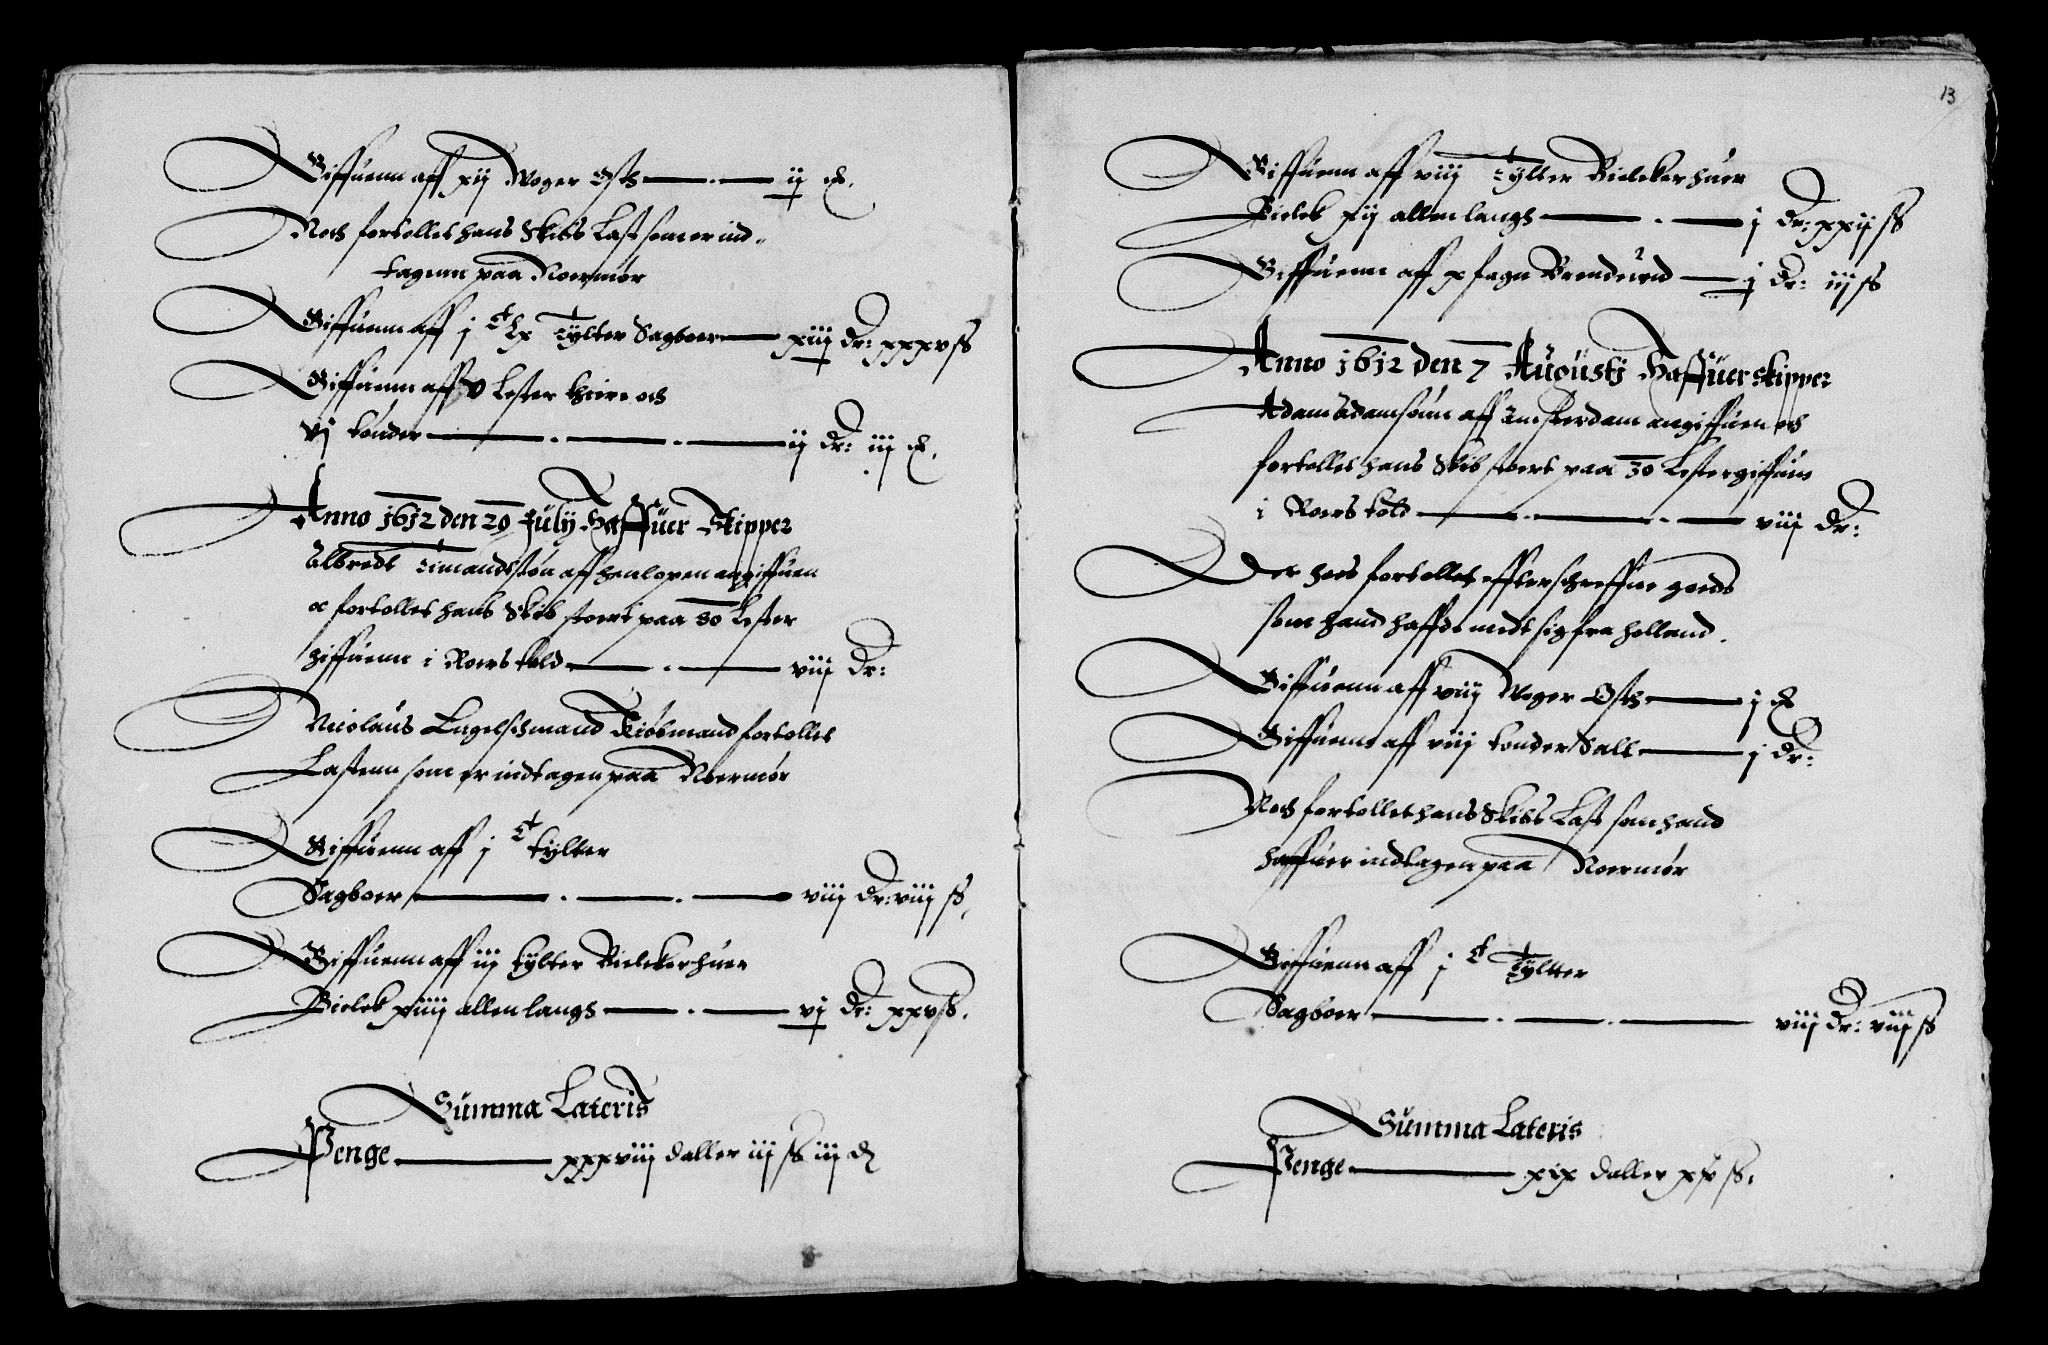 Giffuenn aff xij Woger Osth ij
Noch fortollet hans Skibs Last som er ind-
tagenn paa Noermør
Giffuenn aff j C lx Tylter Sagboer xiij Dr: xxxv ß
Giffuenn aff v Lester thiere och
vj tonder ij Dr: iij
Anno 1612 den 29 July Haffuer Skipper
Albredt Timandssøn aff henlopen angiffuen
oc fortollet hans Skib stoert paa 30 Lester
giffuenn i Roers told viij Dr:
Nicolaus Engelschmand Kiøbmand fortollet
Lastenn som er indtagen paa Noermør
Giffuenn aff j C tylter
Sagboer viij Dr: viij ß
Giffuenn aff iij tylter Bielckerhuer
Bielck xiiij allen langs vj Dr: xxv ß
Summa Lateris
Penge xxxviij daller iij ß iij
13
Giffuenn aff viij Tylter Bielckerhuer
Bielck xij allen langs j Dr: xxij ß
Giffuenn aff x fagn Brendeved j Dr: iij ß
Anno 1612 den 7 Augustj Haffuer skipper
Adam Adamsonn aff Amsterdam angiffuen och
fortollet hans Skib stoert paa 30 Lester giffuin
i Roers told viij Dr:
Der hoes fortollet effterschreffne goeds
som hand haffde medt sig fra holland.
Giffuenn aff viij Woger Osth j
Giffuenn aff viij tonder Salt j Dr:
Noch fortollet hans Skibs Last som hand
haffuer indtagen paa Noermør
Giffuenn aff j C Tylter
Sagboer viij Dr: viij ß
Summa Lateris
Penge xix daller xx ß